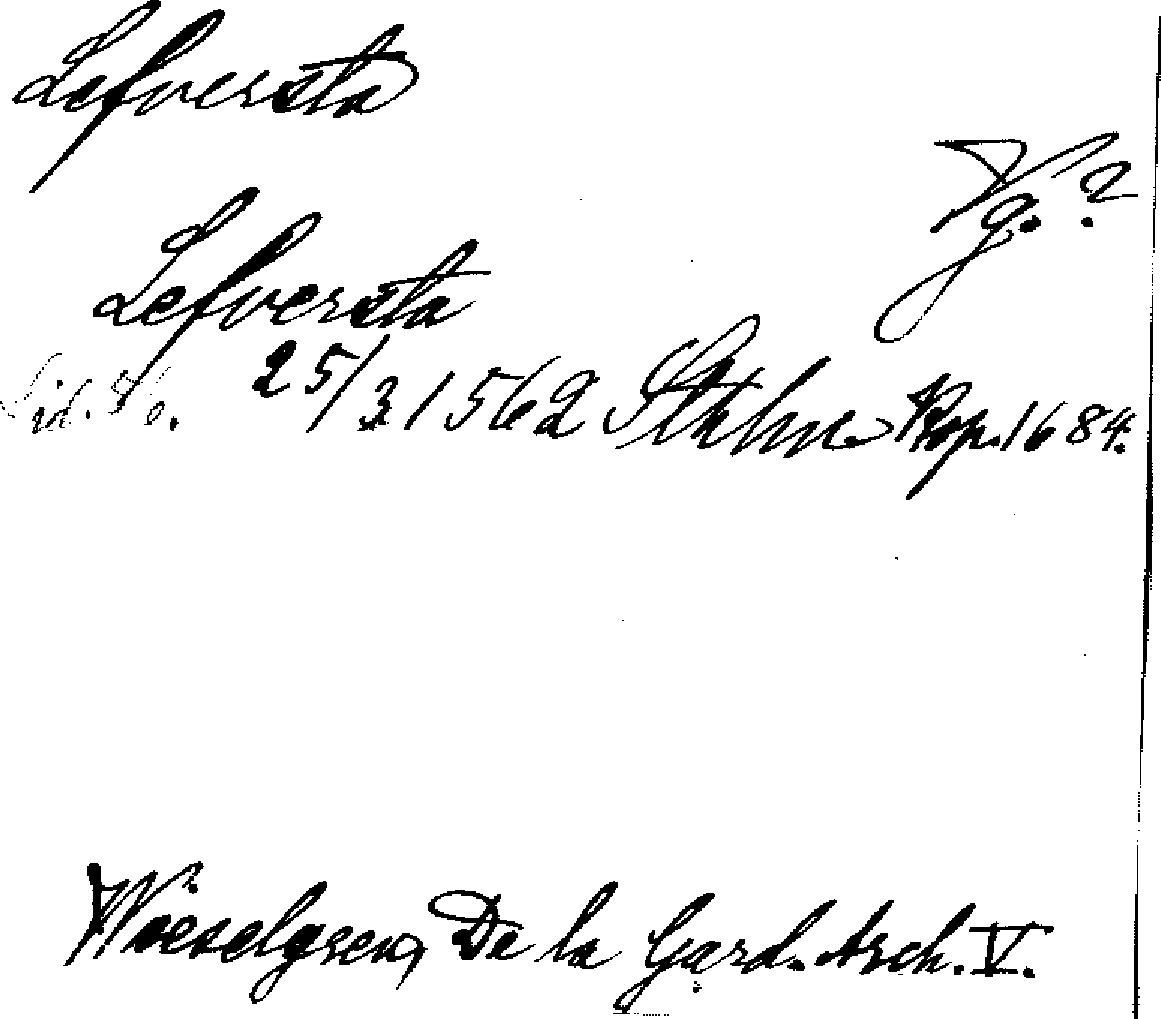 Lefversta
Vg.?
Lefversta
Sid. 86. 25/3 1562 Sthlm Kop. 1684.
Wieselgren, De la Gard. Arch. V.